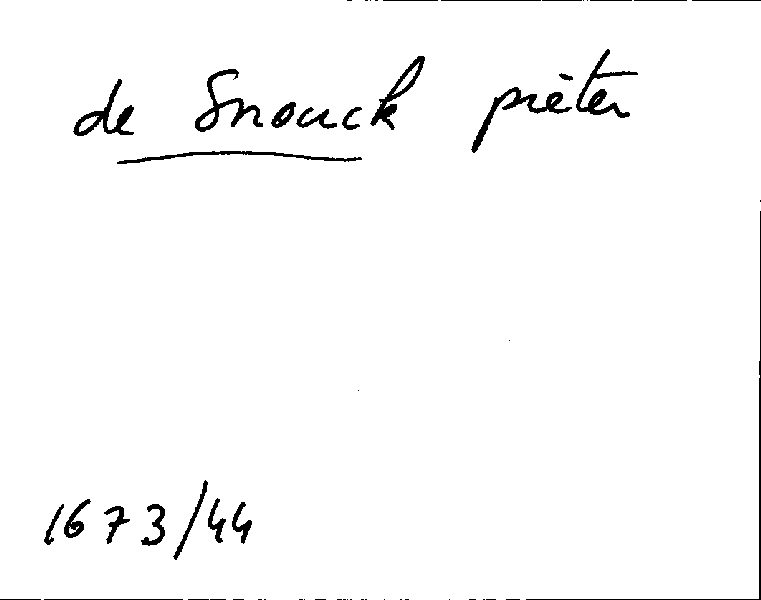 de Snouck pieter
1673/44